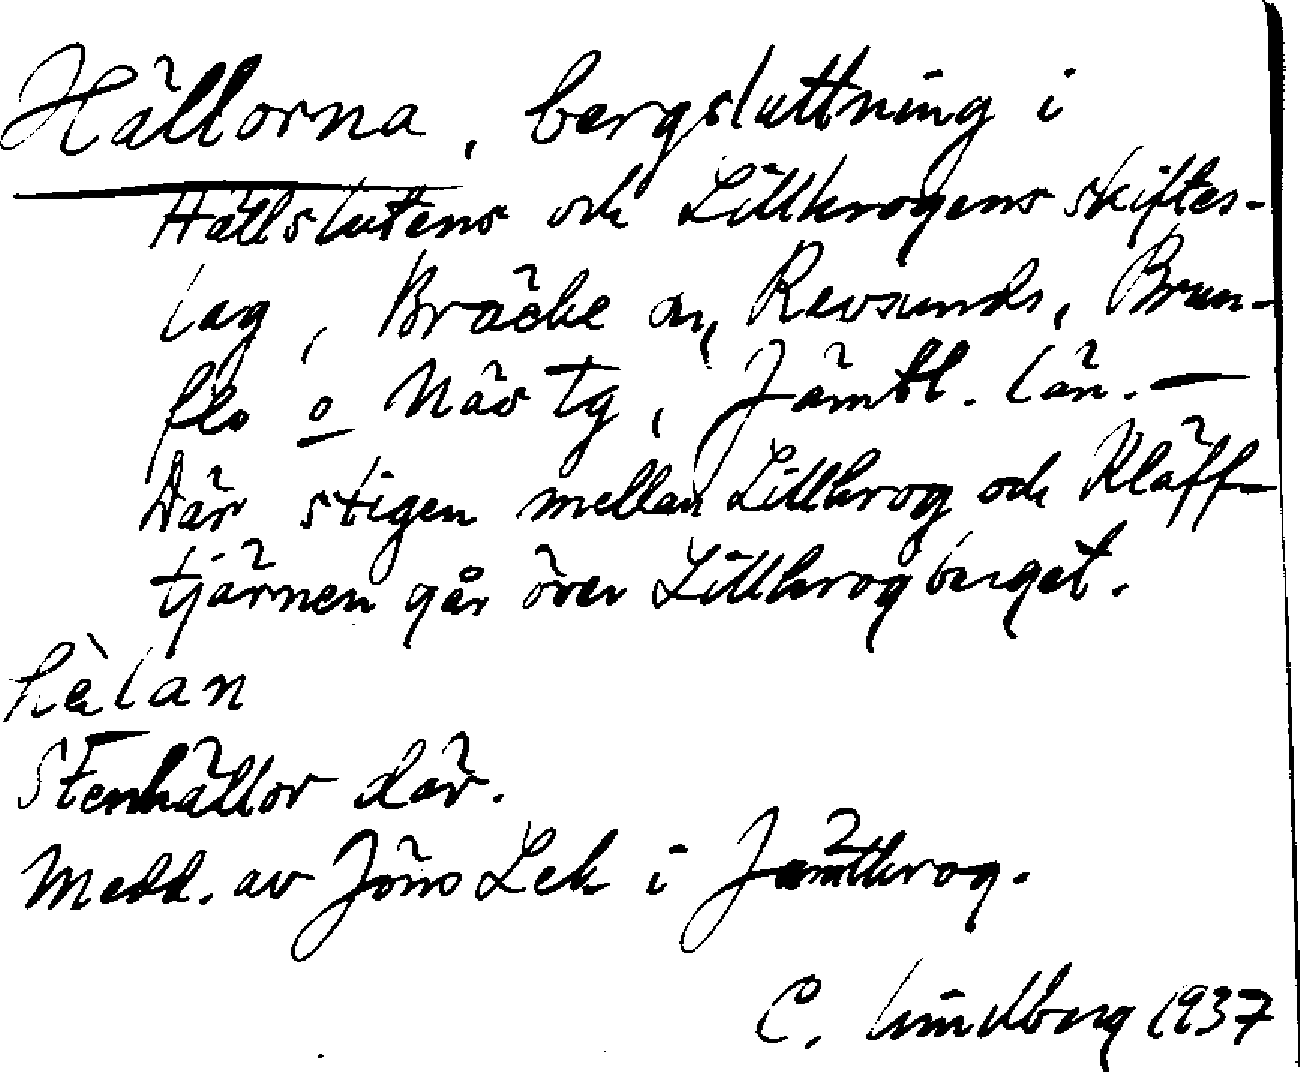 Hällorna, bergsluttning i
Hällslutens och Lillkrogens skiftes-
lag, Bräcke sn, Revsunds, Brun-
flo o Näs tg, Jämtl. län. —
Där stigen mellan Lillkrog och Kläff-
tjärnen går över Lillkrogberget.
hèlan
Stenhällor där.
Medd. av Jöns Lek i Jämtkrog.
C. Lindberg 1937